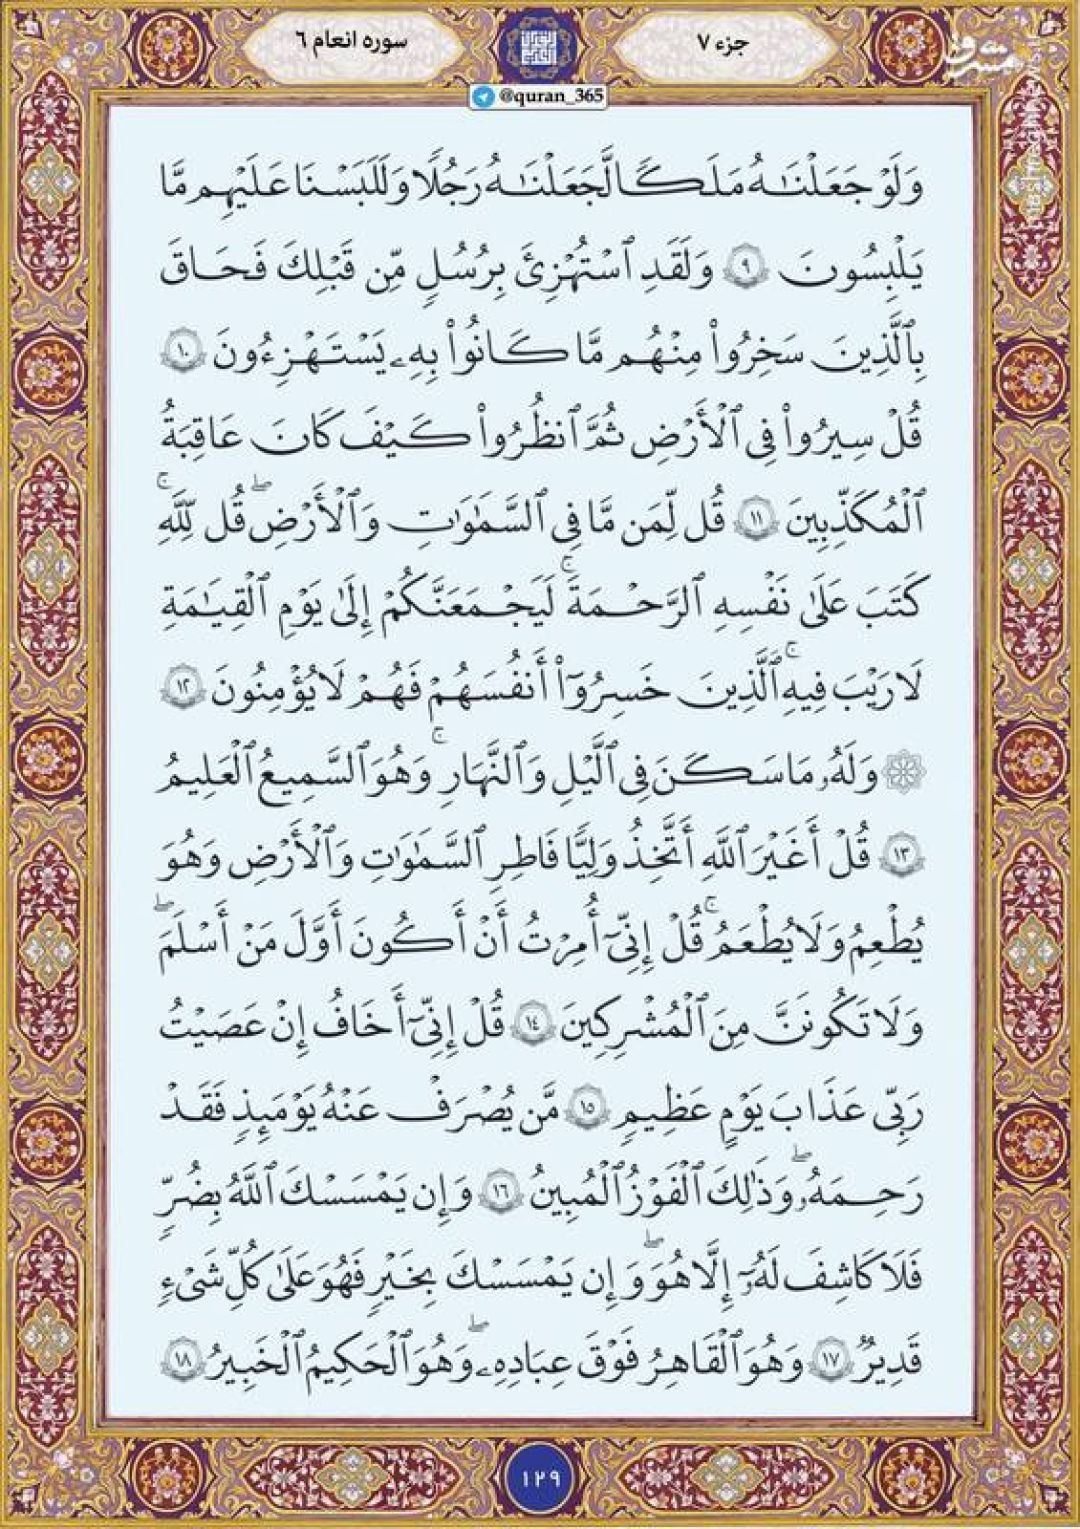 جزء ۷
سوره انعام ۶
مشرق
@quran_365
وَلَوْ جَعَلْنَـٰهُ مَلَكًا لَّجَعَلْنَـٰهُ رَجُلًا وَلَلَبَسْنَا عَلَيْهِم مَّا
يَلْبِسُونَ ٩ وَلَقَدِ ٱسْتُهْزِئَ بِرُسُلٍ مِّن قَبْلِكَ فَحَاقَ
بِٱلَّذِينَ سَخِرُوا۟ مِنْهُم مَّا كَانُوا۟ بِهِۦ يَسْتَهْزِءُونَ ١٠
قُلْ سِيرُوا۟ فِى ٱلْأَرْضِ ثُمَّ ٱنظُرُوا۟ كَيْفَ كَانَ عَاقِبَةُ
ٱلْمُكَذِّبِينَ ١١ قُل لِّمَن مَّا فِى ٱلسَّمَـٰوَٰتِ وَٱلْأَرْضِ ۖ قُل لِّلَّهِ ۚ
كَتَبَ عَلَىٰ نَفْسِهِ ٱلرَّحْمَةَ ۚ لَيَجْمَعَنَّكُمْ إِلَىٰ يَوْمِ ٱلْقِيَـٰمَةِ
لَا رَيْبَ فِيهِ ۚ ٱلَّذِينَ خَسِرُوٓا۟ أَنفُسَهُمْ فَهُمْ لَا يُؤْمِنُونَ ١٢
۞ وَلَهُۥ مَا سَكَنَ فِى ٱلَّيْلِ وَٱلنَّهَارِ ۚ وَهُوَ ٱلسَّمِيعُ ٱلْعَلِيمُ
١٣ قُلْ أَغَيْرَ ٱللَّهِ أَتَّخِذُ وَلِيًّا فَاطِرِ ٱلسَّمَـٰوَٰتِ وَٱلْأَرْضِ وَهُوَ
يُطْعِمُ وَلَا يُطْعَمُ ۗ قُلْ إِنِّىٓ أُمِرْتُ أَنْ أَكُونَ أَوَّلَ مَنْ أَسْلَمَ ۖ
وَلَا تَكُونَنَّ مِنَ ٱلْمُشْرِكِينَ ١٤ قُلْ إِنِّىٓ أَخَافُ إِنْ عَصَيْتُ
رَبِّى عَذَابَ يَوْمٍ عَظِيمٍ ١٥ مَّن يُصْرَفْ عَنْهُ يَوْمَئِذٍ فَقَدْ
رَحِمَهُۥ ۖ وَذَٰلِكَ ٱلْفَوْزُ ٱلْمُبِينُ ١٦ وَإِن يَمْسَسْكَ ٱللَّهُ بِضُرٍّ
فَلَا كَاشِفَ لَهُۥٓ إِلَّا هُوَ ۖ وَإِن يَمْسَسْكَ بِخَيْرٍ فَهُوَ عَلَىٰ كُلِّ شَىْءٍ
قَدِيرٌ ١٧ وَهُوَ ٱلْقَاهِرُ فَوْقَ عِبَادِهِۦ ۖ وَهُوَ ٱلْحَكِيمُ ٱلْخَبِيرُ ١٨
١٢٩